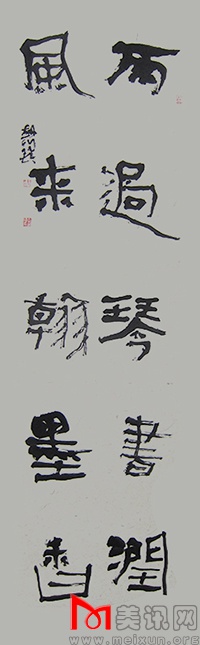 雨過琴書潤
風來翰墨香
美讯网
www.meixun.org